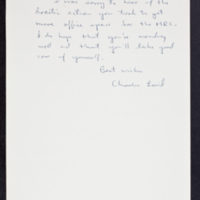 I was sorry to hear of the
drastic action you took to get
more office space for the MRC.
I do hope that you're mending
well and that you'll take good
care of yourself.
Best wishes
Charles